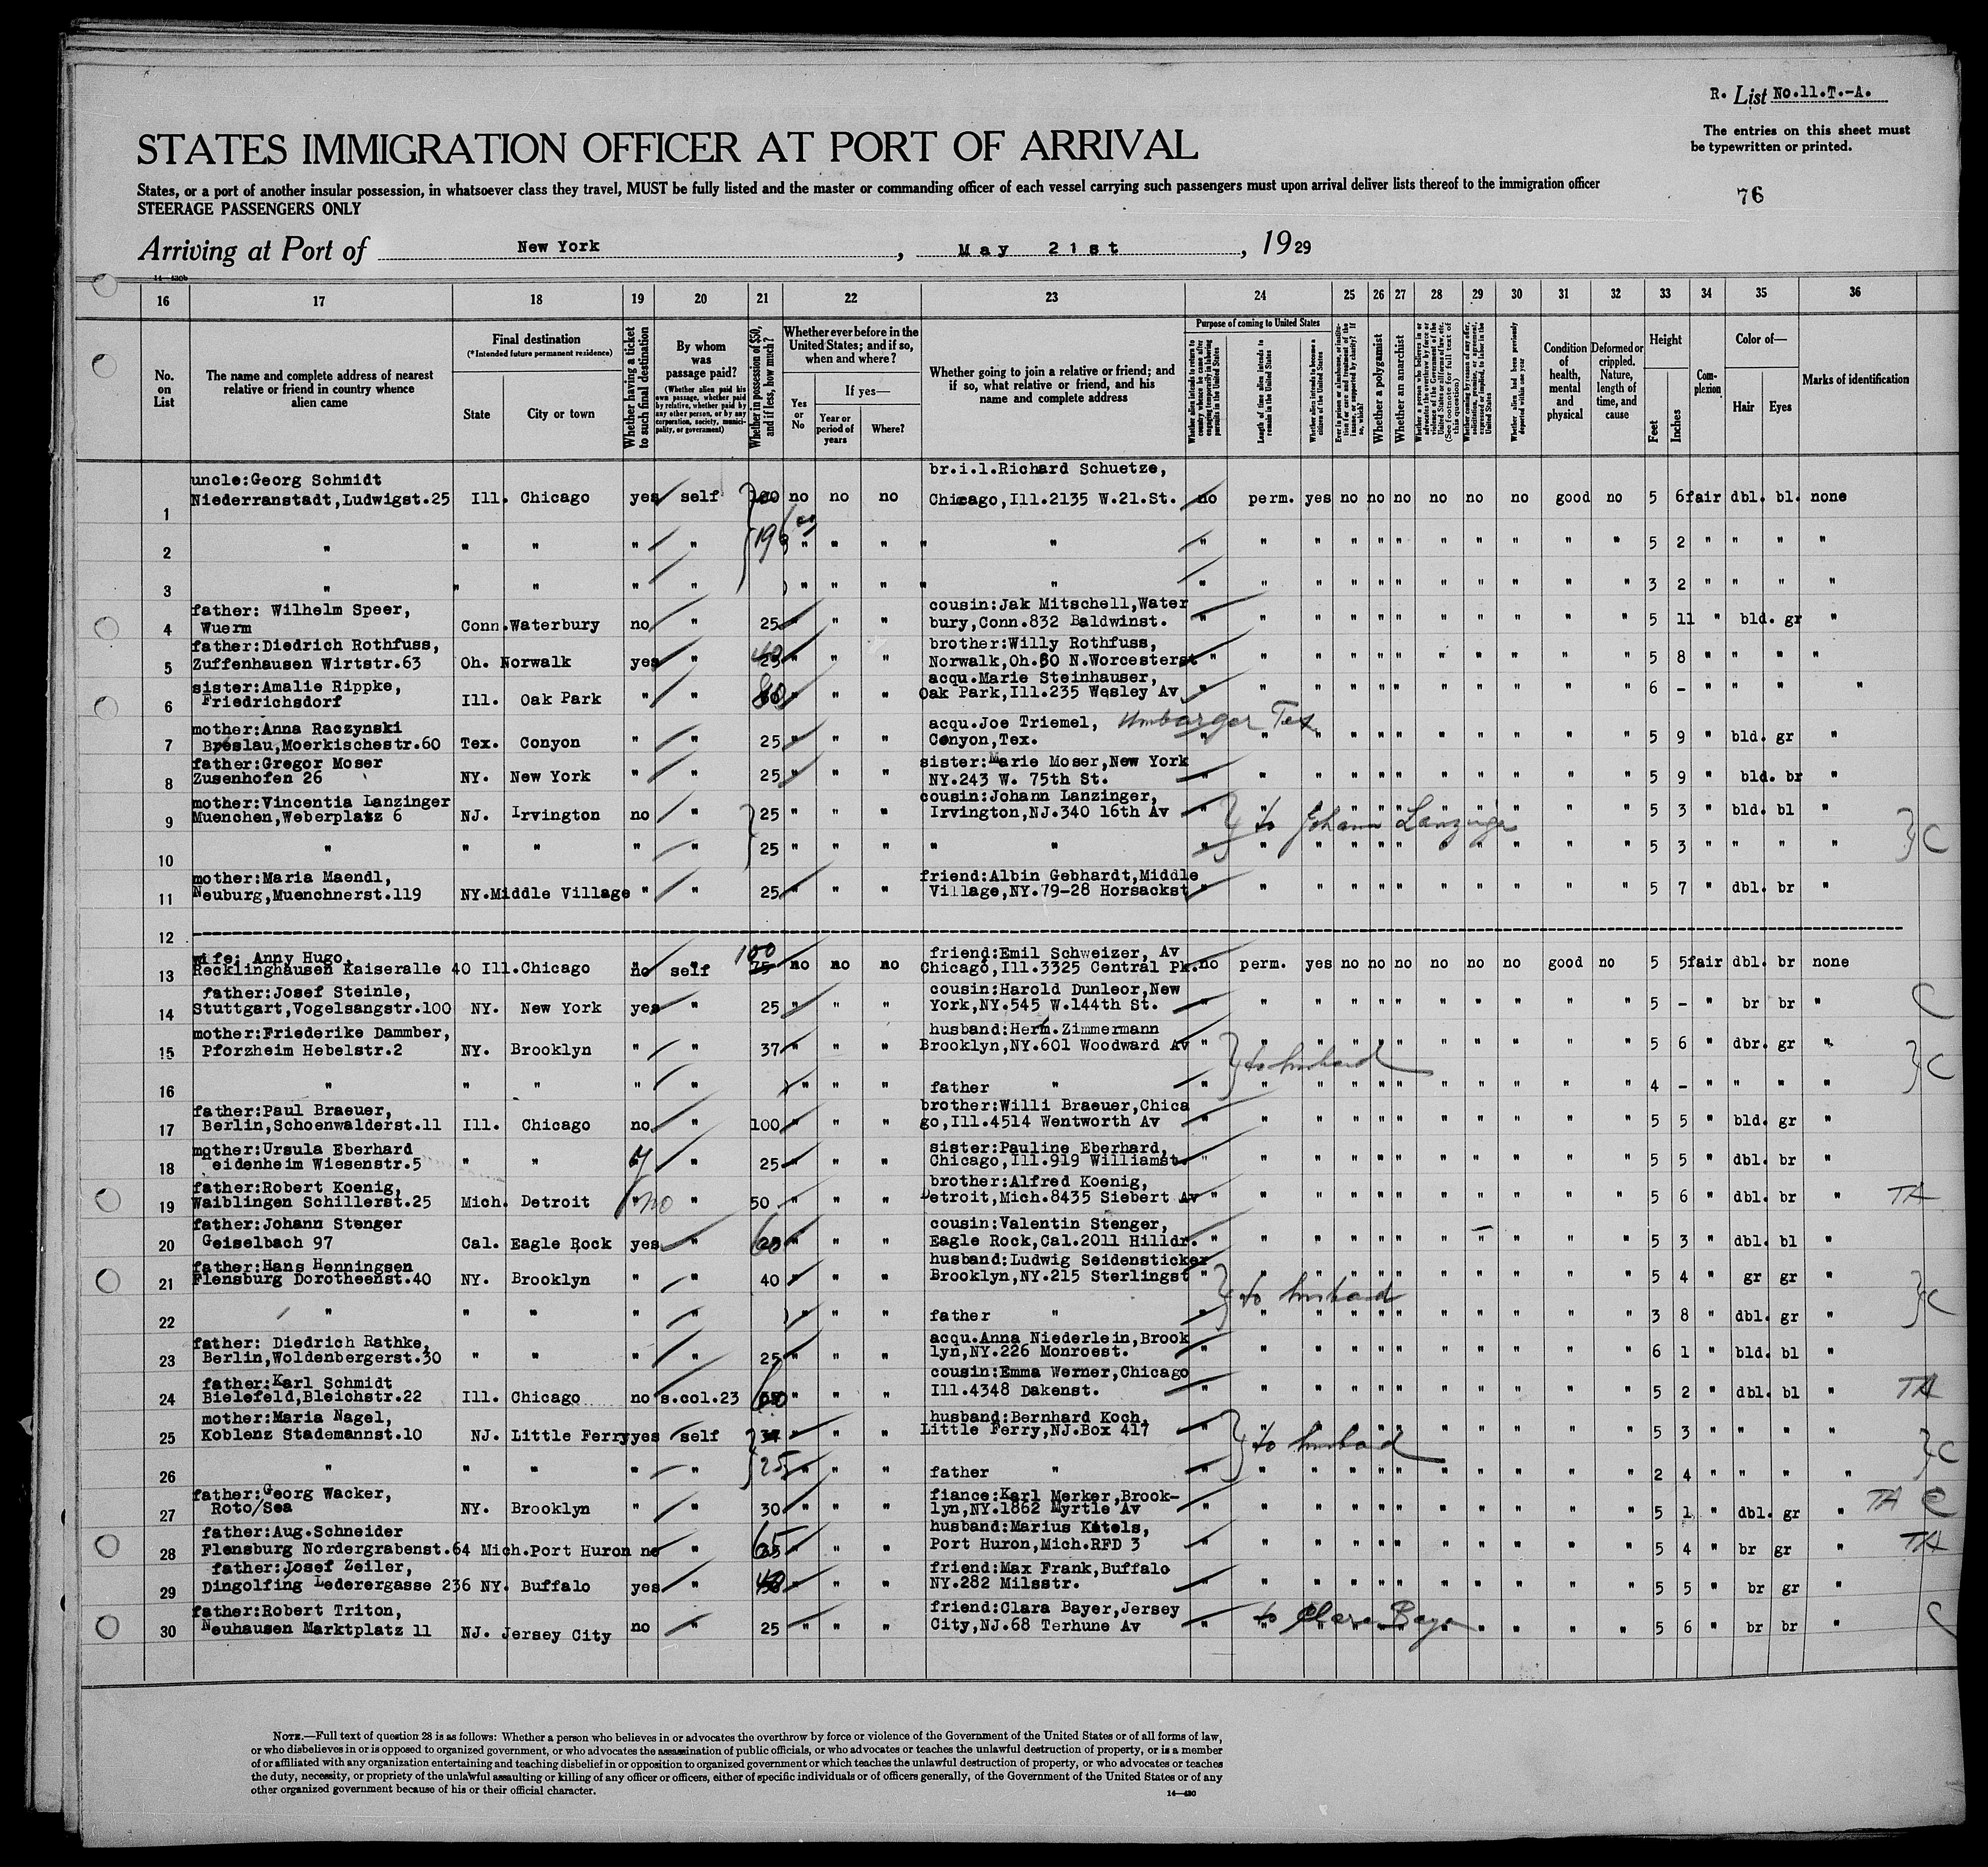 R. List No.11.T.-A.
The entries on this sheet must
be typewritten or printed.
STATES IMMIGRATION OFFICER AT PORT OF ARRIVAL
States, or a port of another insular possession, in whatsoever class they travel, MUST be fully listed and the master or commanding officer of each vessel carrying such passengers must upon arrival deliver lists thereof to the immigration officer
STEERAGE PASSENGERS ONLY
76
Arriving at Port of New York, May 21st, 1929
14—430b
16 17 18 19 20 21 22 23 24 25 26 27 28 29 30 31 32 33 34 35 36
No. on List
The name and complete address of nearest relative or friend in country whence alien came
Final destination
(*Intended future permanent residence)
State
City or town
Whether having a ticket to such final destination
By whom was passage paid?
(Whether alien paid his own passage, whether paid by relative, whether paid by any other person, or by any corporation, society, municipality, or government)
Whether in possession of $50, and if less, how much?
Whether ever before in the United States; and if so, when and where?
Yes or No
If yes—
Year or period of years
Where?
Whether going to join a relative or friend; and if so, what relative or friend, and his name and complete address
Purpose of coming to United States
Length of time alien intends to remain in the United States
Whether alien intends to become a citizen of the United States
Whether a polygamist
Whether an anarchist
Condition of health, mental and physical
Deformed or crippled. Nature, length of time, and cause
Height
Feet
Inches
Complexion
Color of—
Hair
Eyes
Marks of identification
1 uncle:Georg Schmidt
Niederranstadt,Ludwigst.25 Ill. Chicago yes self 100 no no no br.i.l.Richard Schuetze,
Chicago,Ill.2135 W.21.St. no perm. yes no no no no no no good no 5 6 fair dbl. bl. none
2 " " " " " 196 " " " " " " " " " " " " " " " " 5 2 " " " "
3 " " " " " " " " " " " " " " " " " " " " " 3 2 " " " "
4 father: Wilhelm Speer,
Wuerm Conn. Waterbury no " 25 " " " cousin:Jak Mitschell,Water
bury,Conn.832 Baldwinst. " " " " " " " " " " " 5 11 " bld. gr "
5 father:Diedrich Rothfuss,
Zuffenhausen Wirtstr.63 Oh. Norwalk yes " 25 40 " " " brother:Willy Rothfuss,
Norwalk,Oh.80 N.Worcesterst " " " " " " " " " " " 5 8 " " " "
6 sister:Amalie Rippke,
Friedrichsdorf Ill. Oak Park " " 80 " " " acqu.Marie Steinhauser,
Oak Park,Ill.235 Wesley Av " " " " " " " " " " " 6 - " " " "
7 mother:Anna Raczynski
Breslau,Moerkischestr.60 Tex. Conyon " " 25 " " " acqu.Joe Triemel, Umbarger Tex
Conyon,Tex. " " " " " " " " " " " 5 9 " bld. gr "
8 father:Gregor Moser
Zusenhofen 26 NY. New York " " 25 " " " sister:Marie Moser,New York
NY.243 W. 75th St. " " " " " " " " " " " 5 9 " bld. br "
9 mother:Vincentia Lanzinger
Muenchen,Weberplatz 6 NJ. Irvington no " 25 " " " cousin:Johann Lanzinger,
Irvington,NJ.340 16th Av " to Johann Lanzinger 5 3 " bld. bl "
10 " " " " " 25 " " " " " " " " " " " " " " " " 5 3 " " " " C
11 mother:Maria Maendl,
Neuburg,Muenchnerst.119 NY. Middle Village " " 25 " " " friend:Albin Gebhardt,Middle
Village,NY.79-28 Horsackst " " " " " " " " " " " 5 7 " dbl. br "
12
13 wife: Anny Hugo,
Recklinghausen Kaiseralle 40 Ill. Chicago no self 75 100 no no no friend:Emil Schweizer, Av
Chicago,Ill.3325 Central Pk. no perm. yes no no no no no no good no 5 5 fair dbl. br none
14 father:Josef Steinle,
Stuttgart,Vogelsangstr.100 NY. New York yes " 25 " " " cousin:Harold Dunleor,New
York,NY.545 W.144th St. " " " " " " " " " " " 5 - " br br " C
15 mother:Friederike Dammber,
Pforzheim Hebelstr.2 NY. Brooklyn " " 37 " " " husband:Herm.Zimmermann
Brooklyn,NY.601 Woodward Av " to husband 5 6 " dbr. gr " C
16 " " " " " " " " father " " " " " " " " " " " " 4 - " " " "
17 father:Paul Braeuer,
Berlin,Schoenwalderst.11 Ill. Chicago no " 100 " " " brother:Willi Braeuer,Chica
go,Ill.4514 Wentworth Av " " " " " " " " " " " 5 5 " bld. gr "
18 mother:Ursula Eberhard
eidenheim Wiesenstr.5 " " y " 25 " " " sister:Pauline Eberhard,
Chicago,Ill.919 Williamst. " " " " " " " " " " " 5 5 " dbl. br "
19 father:Robert Koenig,
Waiblingen Schillerst.25 Mich. Detroit " no 50 " " " brother:Alfred Koenig,
Detroit,Mich.8435 Siebert Av " " " " " " " " " " " 5 6 " dbl. br " TA
20 father:Johann Stenger
Geiselbach 97 Cal. Eagle Rock yes " 60 " " " cousin:Valentin Stenger,
Eagle Rock,Cal.2011 Hilldr. " " " " " " " " " " " 5 3 " dbl. bl "
21 father:Hans Henningsen
Flensburg Dorotheenst.40 NY. Brooklyn " " 40 " " " husband:Ludwig Seidensticker
Brooklyn,NY.215 Sterlingst " to husband 5 4 " gr gr " C
22 " " " " " " " " father " " " " " " " " " " " " 3 8 " dbl. gr "
23 father: Diedrich Rathke,
Berlin,Woldenbergerst.30 " " " " 25 " " " acqu.Anna Niederlein,Brook
lyn,NY.226 Monroest. " " " " " " " " " " " 6 1 " bld. bl "
24 father:Karl Schmidt
Bielefeld,Bleichstr.22 Ill. Chicago no s.col.23 60 " " " cousin:Emma Werner,Chicago
Ill.4348 Dakenst. " " " " " " " " " " " 5 2 " dbl. bl " TA
25 mother:Maria Nagel,
Koblenz Stademannst.10 NJ. Little Ferry yes self " " " husband:Bernhard Koch,
Little Ferry,NJ.Box 417 " to husbad 5 3 " " " " C
26 " " " " " 25 " " " father " " " " " " " " " " " " 2 4 " " " "
27 father:Georg Wacker,
Roto/Sea NY. Brooklyn " " 30 " " " fiance:Karl Merker,Brook-
lyn,NY.1862 Myrtle Av " " " " " " " " " " " 5 1 " dbl. gr " TA C
28 father:Aug.Schneider
Flensburg Nordergrabenst.64 Mich. Port Huron no " 65 " " " husband:Marius Katels,
Port Huron,Mich.RFD 3 " " " " " " " " " " " 5 4 " br gr " TA
29 father:Josef Zeiler,
Dingolfing Lederergasse 236 NY. Buffalo yes " 40 " " " friend:Max Frank,Buffalo
NY.282 Milsstr. " " " " " " " " " " " 5 5 " br gr "
30 father:Robert Triton,
Neuhausen Marktplatz 11 NJ. Jersey City no " 25 " " " friend:Clara Bayer,Jersey
City,NJ.68 Terhune Av " to Clara Bayer 5 6 " br br " C
NOTE.—Full text of question 28 is as follows: Whether a person who believes in or advocates the overthrow by force or violence of the Government of the United States or of all forms of law,
or who disbelieves in or is opposed to organized government, or who advocates the assassination of public officials, or who advocates or teaches the unlawful destruction of property, or is a member
of or affiliated with any organization entertaining and teaching disbelief in or opposition to organized government or which teaches the unlawful destruction of property, or who advocates or teaches
the duty, necessity, or propriety of the unlawful assaulting or killing of any officer or officers, either of specific individuals or of officers generally, of the Government of the United States or of any
other organized government because of his or their official character.
14—430